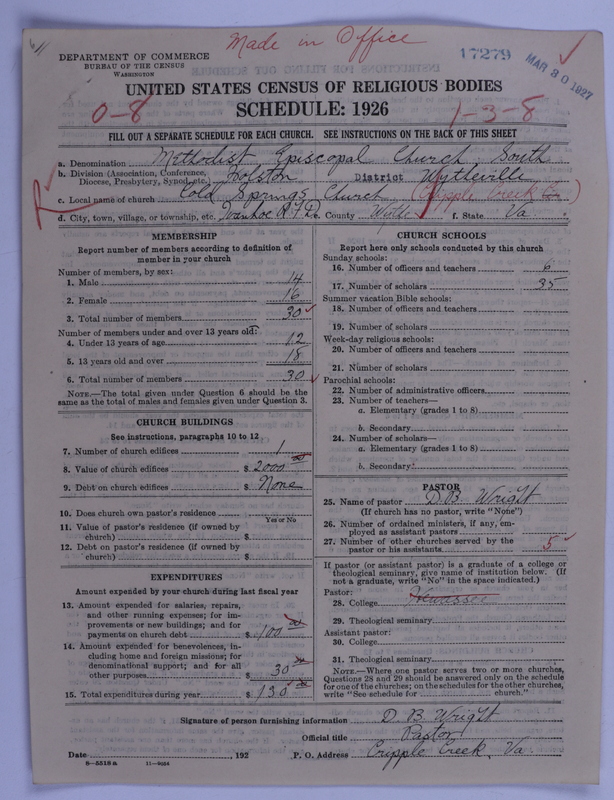 Made in Office
17279
MAR 30 1927
DEPARTMENT OF COMMERCE
BUREAU OF THE CENSUS
WASHINGTON
UNITED STATES CENSUS OF RELIGIOUS BODIES
SCHEDULE: 1926
0-8
1-3-8
FILL OUT A SEPARATE SCHEDULE FOR EACH CHURCH. SEE INSTRUCTIONS ON THE BACK OF THIS SHEET
a. Denomination Methodist Episcopal Church, South
b. Division (Association, Conference, Diocese, Presbytery, Synod, etc.) Holston District Wytheville
c. Local name of church Cold Springs Church (Cripple Creek
d. City, town, village, or township, etc. Ivanhoe R.F.D. e. County Wythe f. State Va.
MEMBERSHIP
Report number of members according to definition of
member in your church
Number of members, by sex:
1. Male 14
2. Female 16
3. Total number of members 30
Number of members under and over 13 years old:
4. Under 13 years of age 12
5. 13 years old and over 18
6. Total number of members 30
NOTE.—The total given under Question 6 should be the
same as the total of males and females given under Question 3.
CHURCH BUILDINGS
See instructions, paragraphs 10 to 12
7. Number of church edifices 1
8. Value of church edifices $ 2000 00
9. Debt on church edifices $ None
10. Does church own pastor's residence
Yes or No
11. Value of pastor's residence (if owned by
church) $
12. Debt on pastor's residence (if owned by
church) $
EXPENDITURES
Amount expended by your church during last fiscal year
13. Amount expended for salaries, repairs,
and other running expenses; for im-
provements or new buildings; and for
payments on church debt $ 100 00
14. Amount expended for benevolences, in-
cluding home and foreign missions; for
denominational support; and for all
other purposes $ 30 00
15. Total expenditures during year $ 130 00
CHURCH SCHOOLS
Report here only schools conducted by this church
Sunday schools:
16. Number of officers and teachers 6
17. Number of scholars 35
Summer vacation Bible schools:
18. Number of officers and teachers
19. Number of scholars
Week-day religious schools:
20. Number of officers and teachers
21. Number of scholars
Parochial schools:
22. Number of administrative officers
23. Number of teachers—
a. Elementary (grades 1 to 8)
b. Secondary
24. Number of scholars—
a. Elementary (grades 1 to 8)
b. Secondary
PASTOR
25. Name of pastor D. B. Wright
(If church has no pastor, write "None")
26. Number of ordained ministers, if any, em-
ployed as assistant pastors
27. Number of other churches served by the
pastor or his assistants 5
If pastor (or assistant pastor) is a graduate of a college or
theological seminary, give name of institution below. (If
not a graduate, write "No" in the space indicated.)
Pastor:
28. College Hiwassee
29. Theological seminary
Assistant pastor:
30. College
31. Theological seminary
NOTE.—Where one pastor serves two or more churches,
Questions 28 and 29 should be answered only on the schedule
for one of the churches; on the schedules for the other churches,
write "See schedule for church."
Signature of person furnishing information D. B. Wright
Official title Pastor
Date 192 P. O. Address Cripple Creek, Va.
8—5518 a 11—9024